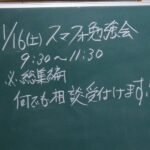 1/16(土)スマフォ勉強会
9:30〜11:30
※総集編
何でも相談受付けます!